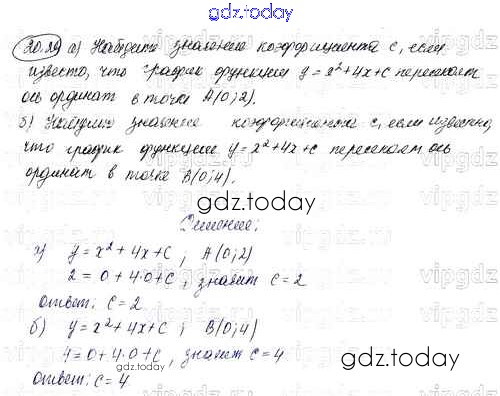 gdz.today
20.29 а) Найдите значение коэффициента с, если
известно, что график функции y = x² + 4x + c пересекает
ось ординат в точке A(0; 2).
б) Найдите значение коэффициента с, если известно,
что график функции y = x² + 4x + c пересекает ось
ординат в точке B(0; 4).
gdz.today
Решение:
а) y = x² + 4x + c ; A(0; 2)
2 = 0 + 4·0 + c, значит c = 2
ответ: c = 2
б) y = x² + 4x + c ; B(0; 4)
4 = 0 + 4·0 + c, значит c = 4
gdz.today
ответ: c = 4